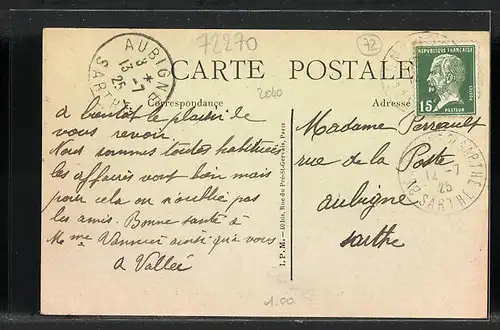 72270
72
AUBIGNÉ
13 -7
25
SARTHE
CARTE POSTALE
RÉPUBLIQUE FRANÇAISE
15c
PASTEUR
POSTES
Correspondance
2040
Adresse
a bientôt le plaisir de
vous revoir.
Nous sommes toutes habituées
les affaires vont bien mais
pour cela on n'oublie pas
les amis. Bonne santé à
Mme Vannier ainsi qu'a vous
a Vallée
I. P. M. — 40 bis, Rue du Pré-St-Gervais, Paris
Madame Perrault
rue de la Poste
aubigne
sarthe
12 -7
25
SARTHE
1.00